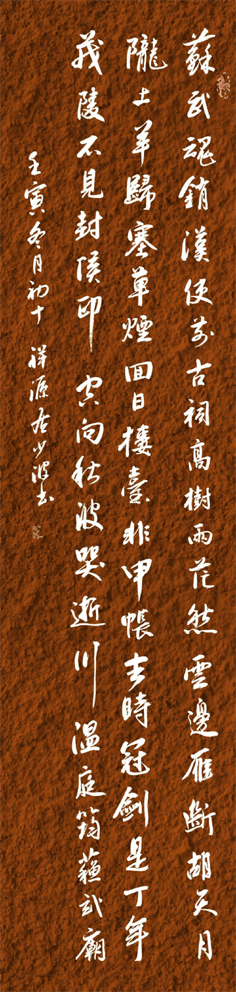 蘇武魂銷漢使前古祠高樹兩茫然雲邊雁斷胡天月
隴上羊歸塞草煙回日樓臺非甲帳去時冠劍是丁年
茂陵不見封侯印空向秋波哭逝川溫庭筠蘓武廟
壬寅冬月初十祥源居少波书